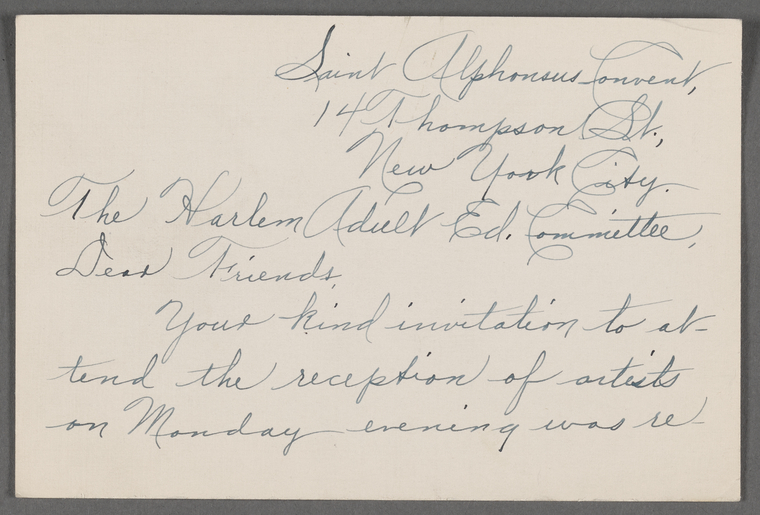 Saint Alphonsus Convent,
14 Thompson St.,
New York City.
The Harlem Adult Ed. Committee,
Dear Friends,
Your kind invitation to at-
tend the reception of artists
on Monday evening was re-